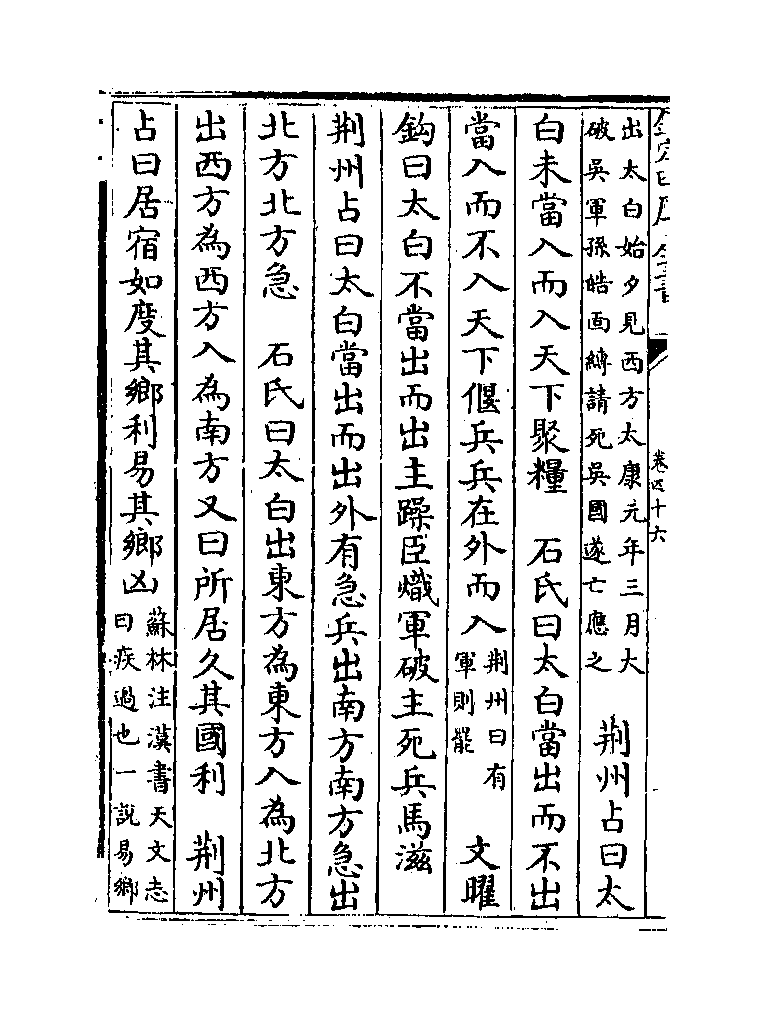 卷四十六
出太白始夕見西方太康元年三月大
破吳軍孫皓面縛請死吳國遂亡應之
荆州占曰太
白未當入而入天下聚糧　石氏曰太白當出而不出
當入而不入天下偃兵兵在外而入
荆州曰有
軍則罷
文曜
鈎曰太白不當出而出主躁臣熾軍破主死兵馬滋
荆州占曰太白當出而出外有急兵出南方南方急出
北方北方急　石氏曰太白出東方為東方入為北方
出西方為西方入為南方又曰所居久其國利　荆州
占曰居宿如度其鄉利易其鄉凶
蘇林注漢書天文志
曰疾過也一說易鄉